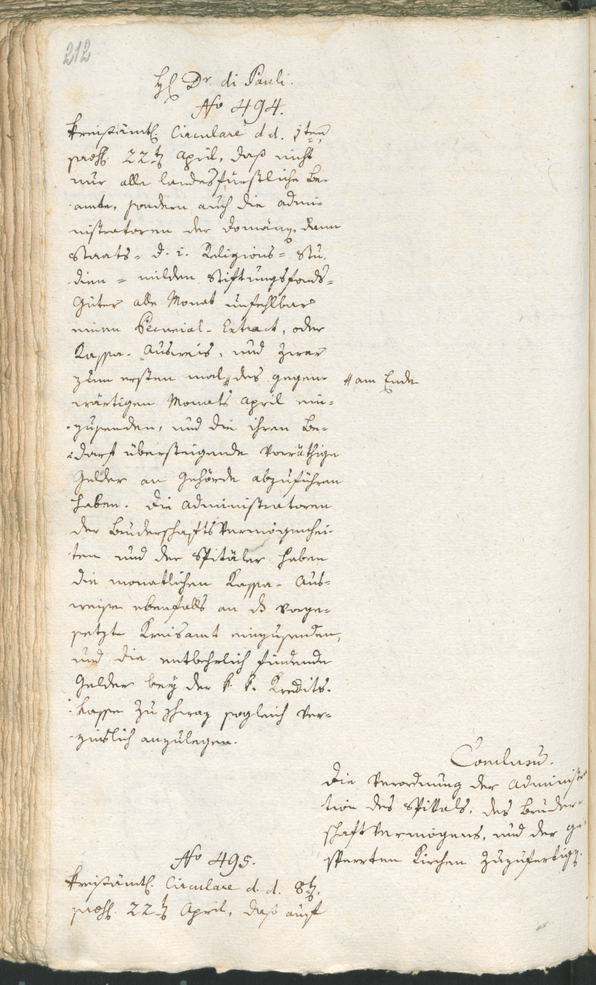 212
H. Dr. di Pauli.
No 494.
Kreisämtl. Circulare d. d. 1ten
praes. 22t. April, daß nicht
nur alle landesfürstliche Be-
amte, sondern auch die Admi-
nistratoren der Domainen, dann
Staats- d. i. Religions- Stu-
dien- milden Stiftungsfonds-
Güter alle Monat unfehlbar
einen Pecunial-Extract, oder
Kassa-Ausweis, und zwar
zum ersten mal // des gegen- // am Ende
wärtigen Monats April ein-
zusenden, und die ihren Be-
darf übersteigende vorräthige
Gelder an Gehörde abzuführen
haben. Die Administratoren
der Bruderschafts Vermögenhei-
ten und der Spitäler haben
die monatlichen Kassa-Aus-
weise ebenfalls an das vorge-
setzte Kreisamt einzusenden,
und die entbehrlich findende
Gelder bey der k. k. Kredits-
Kasse zu Schwaz sogleich ver-
zinslich anzulegen.
Conclusum.
Die Verordnung der Administra-
tion des Spitals, des Bruder-
schaftvermögens, und der ge-
sperrten Kirchen zuzufertigen.
No 495.
Kreisämtl. Circulare d. d. 8t.
praes. 22t. April, daß auf